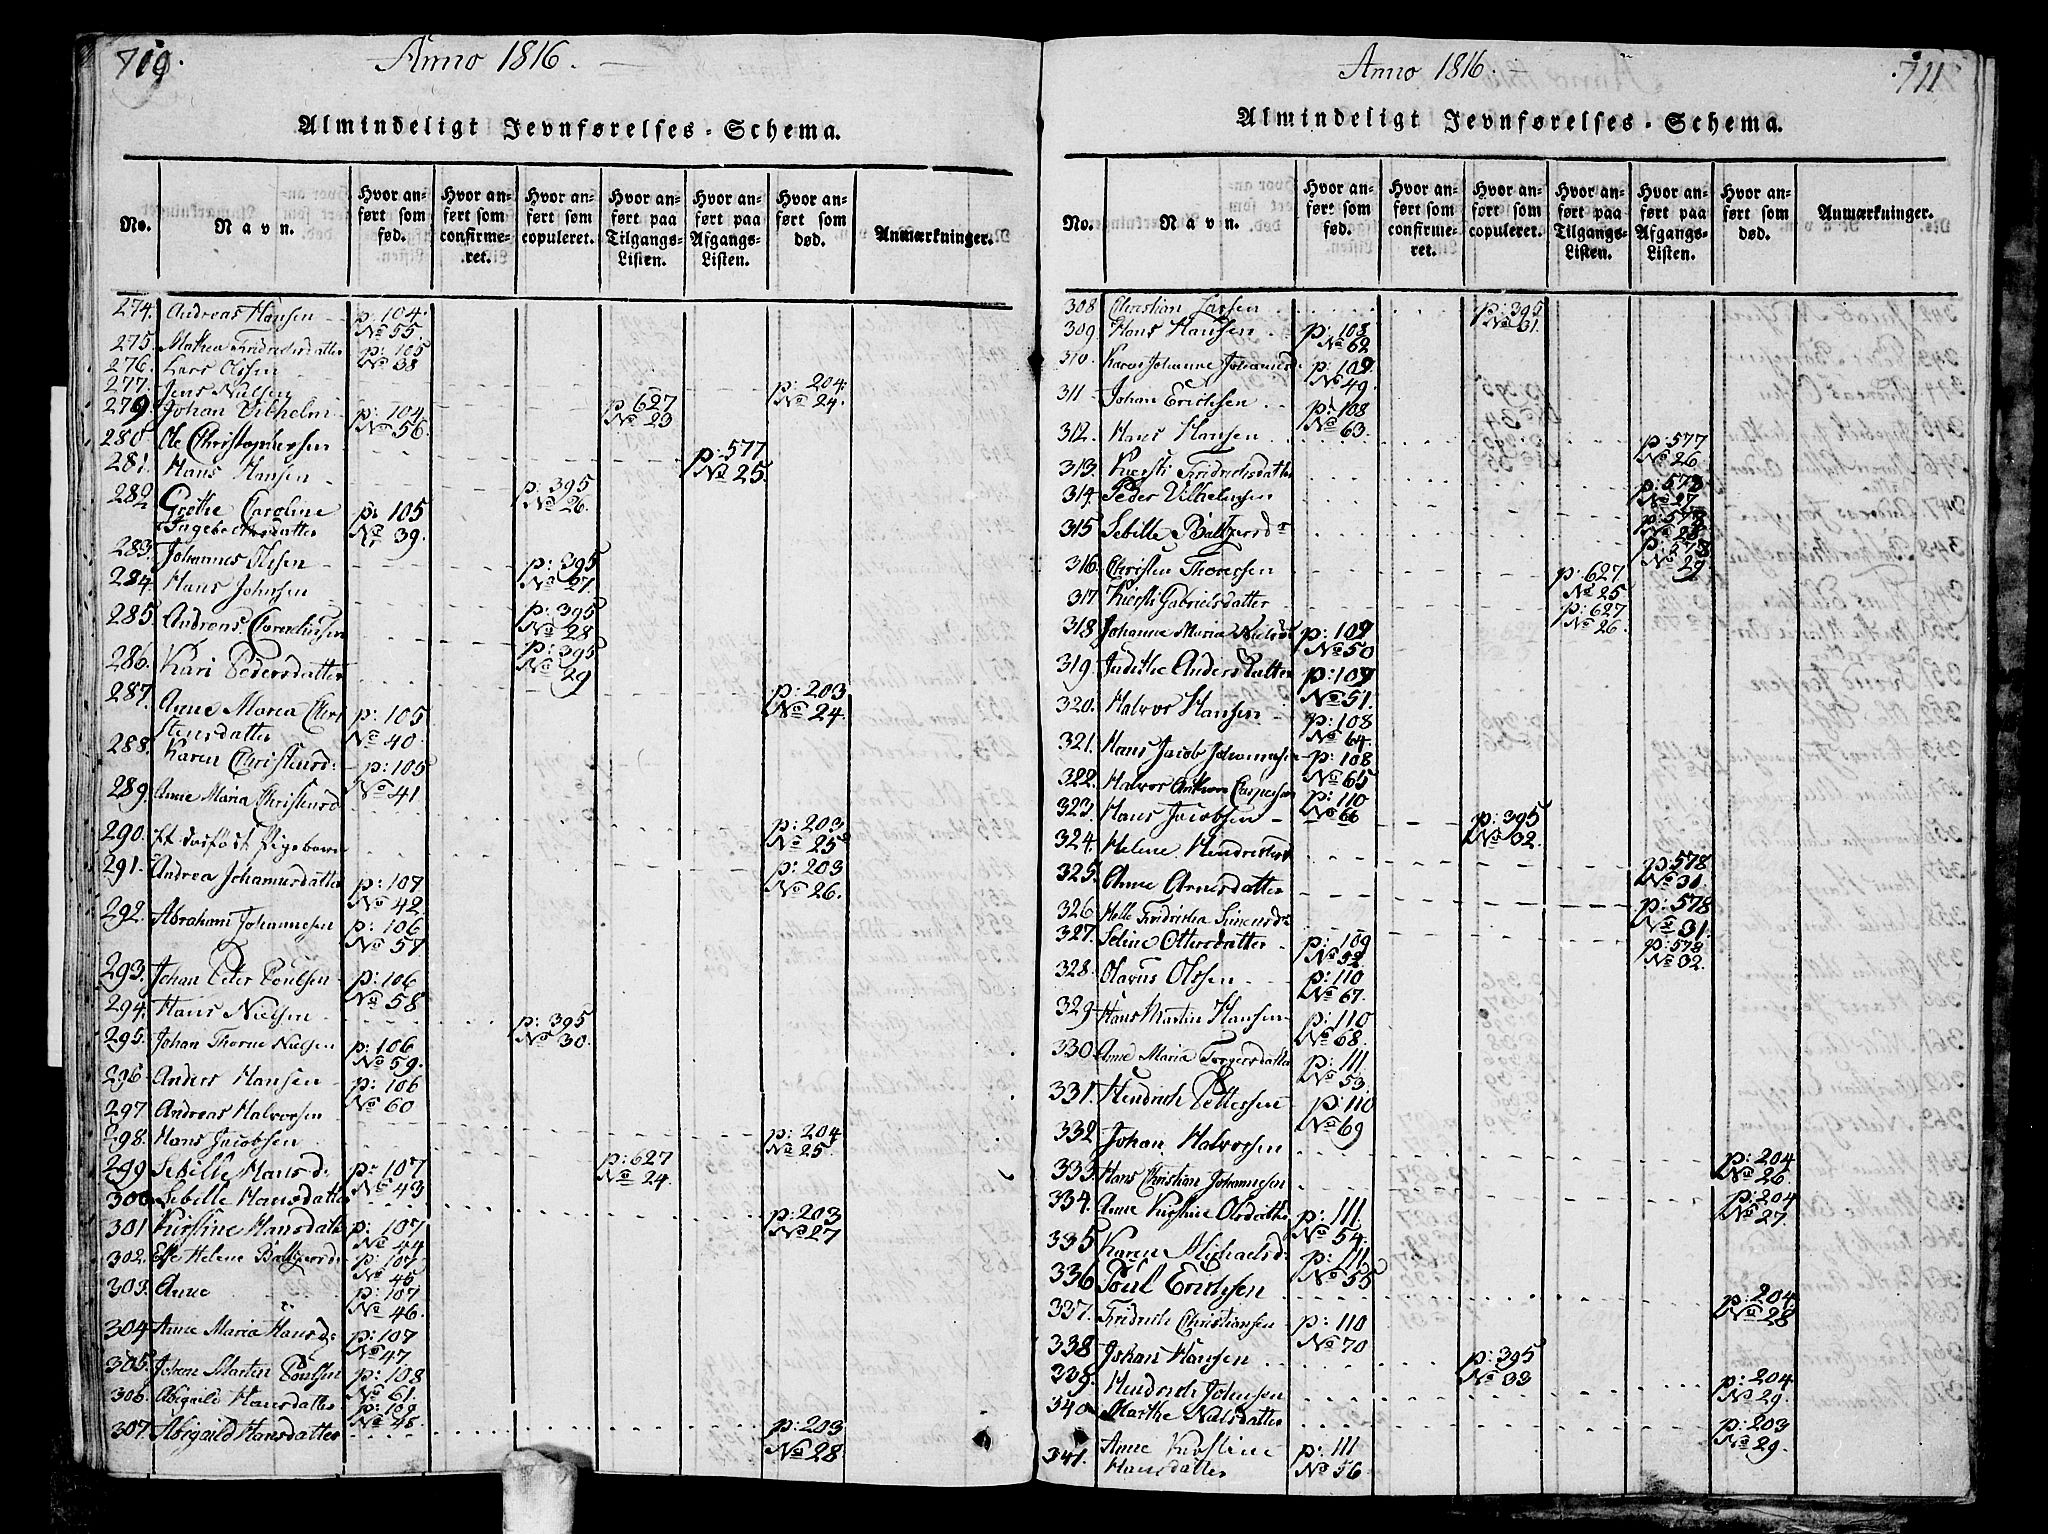 719.
Anno 1816.
Almindeligt Jevnførelses-Schema.
No. Navn. Hvor anført som fød. Hvor anført som confirmeret. Hvor anført som copuleret. Hvor anført paa Tilgangs-Listen. Hvor anført paa Afgangs-Listen. Hvor anført som død. Anmærkninger.
274. Andreas Hansen p: 104. No 55
275. Mathea Fridrichsdatter p: 105 No 38
276. Lars Olssen
277. Jens Nielsen p: 204. No 24.
279. Johan Vilhelm p: 104 No 56. p: 627 No 23
280. Ole Christophersen p: 577 No 25.
281. Hans Hansen p: 395 No 26.
282 Grethe Caroline
Ingebrethsdatter p: 105 No 39.
283. Johannes Olsen p: 395 No 27.
284. Hans Johnsen p: 395 No 28
285. Andreas Corneliusen p: 395 No 29
286. Kari Pedersdatter p: 203 No 24.
287. Anne Maria Chri
stensdatter p: 105 No 40.
288. Karen Christensd: p: 105 No 41.
289. Anne Maria Christensd p: 203 No 25
290. Et dødfødt Pigebarn p: 203 No 26.
291. Andrea Johannesdatter p: 107 No 42
292. Abraham Johannesen p: 106 No 57.
293. Johan Peter Poulsen p: 106 No 58
294. Hans Nielsen p: 395 No 30.
295. Johan Thorne Nielsen p: 106 No 59.
296 Anders Hansen p: 106 No 60
297 Andreas Halvorsen p: 204 No 25
298. Hans Jacobsen p: 627 No 24.
299 Sebille Hansd: p: 107 No 43
300 Sebelle Hansdatter p: 203 No 27
301 Kirstine Hansdatter p: 107 No 44
302. Else Helene Baltzersd: p: 107 No 45
303. Anne p: 107 No 46.
304 Anne Maria Hansd: p: 107 No 47.
305. Johan Martin Poulsen p: 108 No 61.
306. Abigaild Hansdatter p: 109 No 48.
307 Abigaild Hansdatter p: 203 No 28
711
Anno 1816.
Almindeligt Jevnførelses-Schema.
No. Navn. Hvor anført som fød. Hvor anført som confirmeret. Hvor anført som copuleret. Hvor anført paa Tilgangs-Listen. Hvor anført paa Afgangs-Listen. Hvor anført som død. Anmærkninger.
308 Christian Larsen p: 395 No 31.
309. Hans Hansen p: 108 No 62
310. Karen Johanne Johannesd p: 109 No 49.
311 Johan Erichsen p: 108 No 63.
312. Hans Hansen p: 577 No 26
313 Kiersti Fridrichsdatter p: 578 No 27
314. Peder Vilhelmsen p: 578 No 28
315 Sebille Baltzersdr p: 578 No 29
316. Christen Thoresen p: 627 No 25
317 Kiersti Gabrielsdatter p: 627 No 26.
318. Johanne Maria Nielsd p: 109 No 50
319. Judithe Andersdatter p: 109 No 51.
320. Halvor Hansen p: 108 No 64.
321. Hans Jacob Johannesen p: 108 No 65
322. Halvor Anthon Caspersen p: 110 No 66
323. Hans Jacobsen p: 395 No 32.
324. Helene Hendrichsd p: 578 No 30
325. Anne Arnesdatter p: 578 No 31.
326. Helle Fridricha Simensdr p: 578 No 32.
327. Seline Ottersdatter p: 109 No 52
328. Olavus Olssen p: 110 No 67.
329 Hans Martin Hansen p: 110 No 68.
330 Anne Maria Torgersdatter p: 111 No 53.
331. Hendrich Pettersen p: 110 No 69
332 Johan Halvorsen p: 204 No 26
333. Hans Christian Johannesen p: 204 No 27.
334. Anne Kirstine Olsdatter p: 111 No 54.
335 Karen Michaelsd: p: 111 No 55
336 Poul Erichsen p: 204 No 28
337. Fridrich Christiansen p: 110 No 70
338 Johan Hansen p: 395 No 33
339. Hendrich Johnsen p: 204 No 29.
340 Marthe Nielsdatter p: 203 No 29.
341. Anne Kirstine
Hansdatter p: 111 No 56.